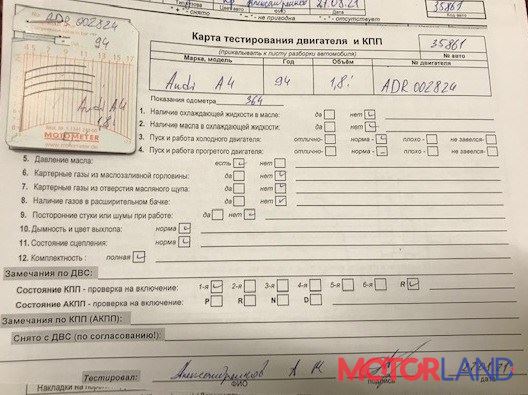 35861
"+" - снято "-" - не приводна "+" - отсутствует
ADR 002824
94
4.5 5 7 9 11 13 15 17
Audi A4
1,8i
MOTOMETER
Карта тестирования двигателя и КПП
35861
(прикалывать к листу разборки автомобиля)
№ авто
Марка, модель Год Объём № двигателя
Audi A4 94 1,8i ADR 002824
Показания одометра 364
1. Наличие охлаждающей жидкости в масле: да нет
2. Наличие масла в охлаждающей жидкости: да нет
3. Пуск и работа холодного двигателя: отлично- норма - плохо - не завелся-
4. Пуск и работа прогретого двигателя: отлично- норма - плохо - не завелся-
5. Давление масла: есть нет
6. Картерные газы из маслозаливной горловины: да нет
7. Картерные газы из отверстия масляного щупа: да нет
8. Наличие газов в расширительном бачке: да нет
9. Посторонние стуки или шумы при работе: да нет
10. Дымность и цвет выхлопа: норма
11. Состояние сцепления: норма
12. Комплектность : полная
Замечания по ДВС:
Состояние КПП - проверка на включение: 1-я 2-я 3-я 4-я 5-я 6-я R
Состояние АКПП - проверка на включение: P R N D
Замечания по КПП (АКПП):
Снято с ДВС (по согласованию!):
Тестировал:
ФИО подпись дата
MOTORLAND
Накладки на